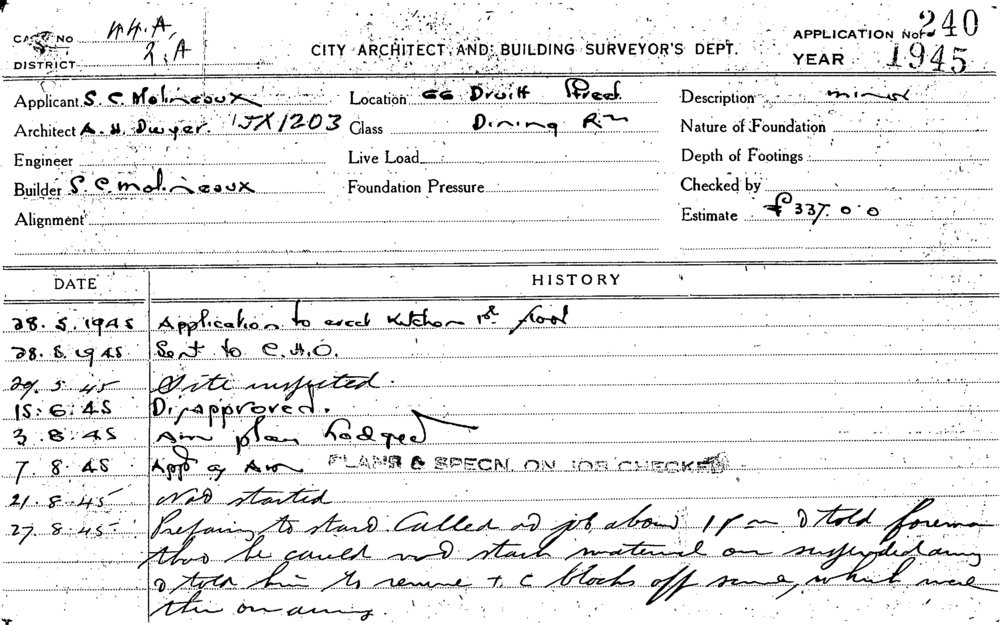 CARD NO 44.A.
2.A
DISTRICT
CITY ARCHITECT AND BUILDING SURVEYOR'S DEPT.
APPLICATION No 240
YEAR 1945
Applicant S. C. Molineaux
Location 66 Druitt Street
Description minor
Architect A. H. Dwyer. JX1203
Class Dining Rm
Nature of Foundation
Engineer
Live Load
Depth of Footings
Builder S. C. Molineaux
Foundation Pressure
Checked by
Alignment
Estimate £337.0.0
DATE HISTORY
28.5.1945 Application to erect Kitchen 1st floor
28.5.1945 Sent to C.H.O.
29.5.45 Site inspected.
15.6.45 Disapproved.
3.8.45 Am plan Lodged
7.8.45 Appd as Am PLANS & SPECN. ON JOB CHECKED
21.8.45 Not started
27.8.45 Preparing to start. Called at job about 1 pm & told foreman
that he could not stack material on suspended awning
& told him to remove T.C blocks off same, which were
then on awning.